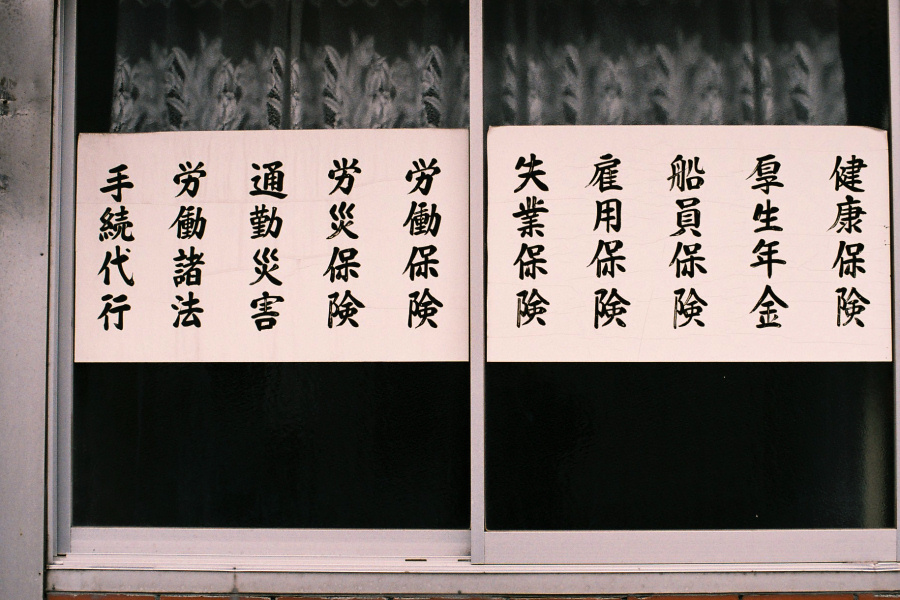 健康保険
厚生年金
船員保険
雇用保険
失業保険
労働保険
労災保険
通勤災害
労働諸法
手続代行